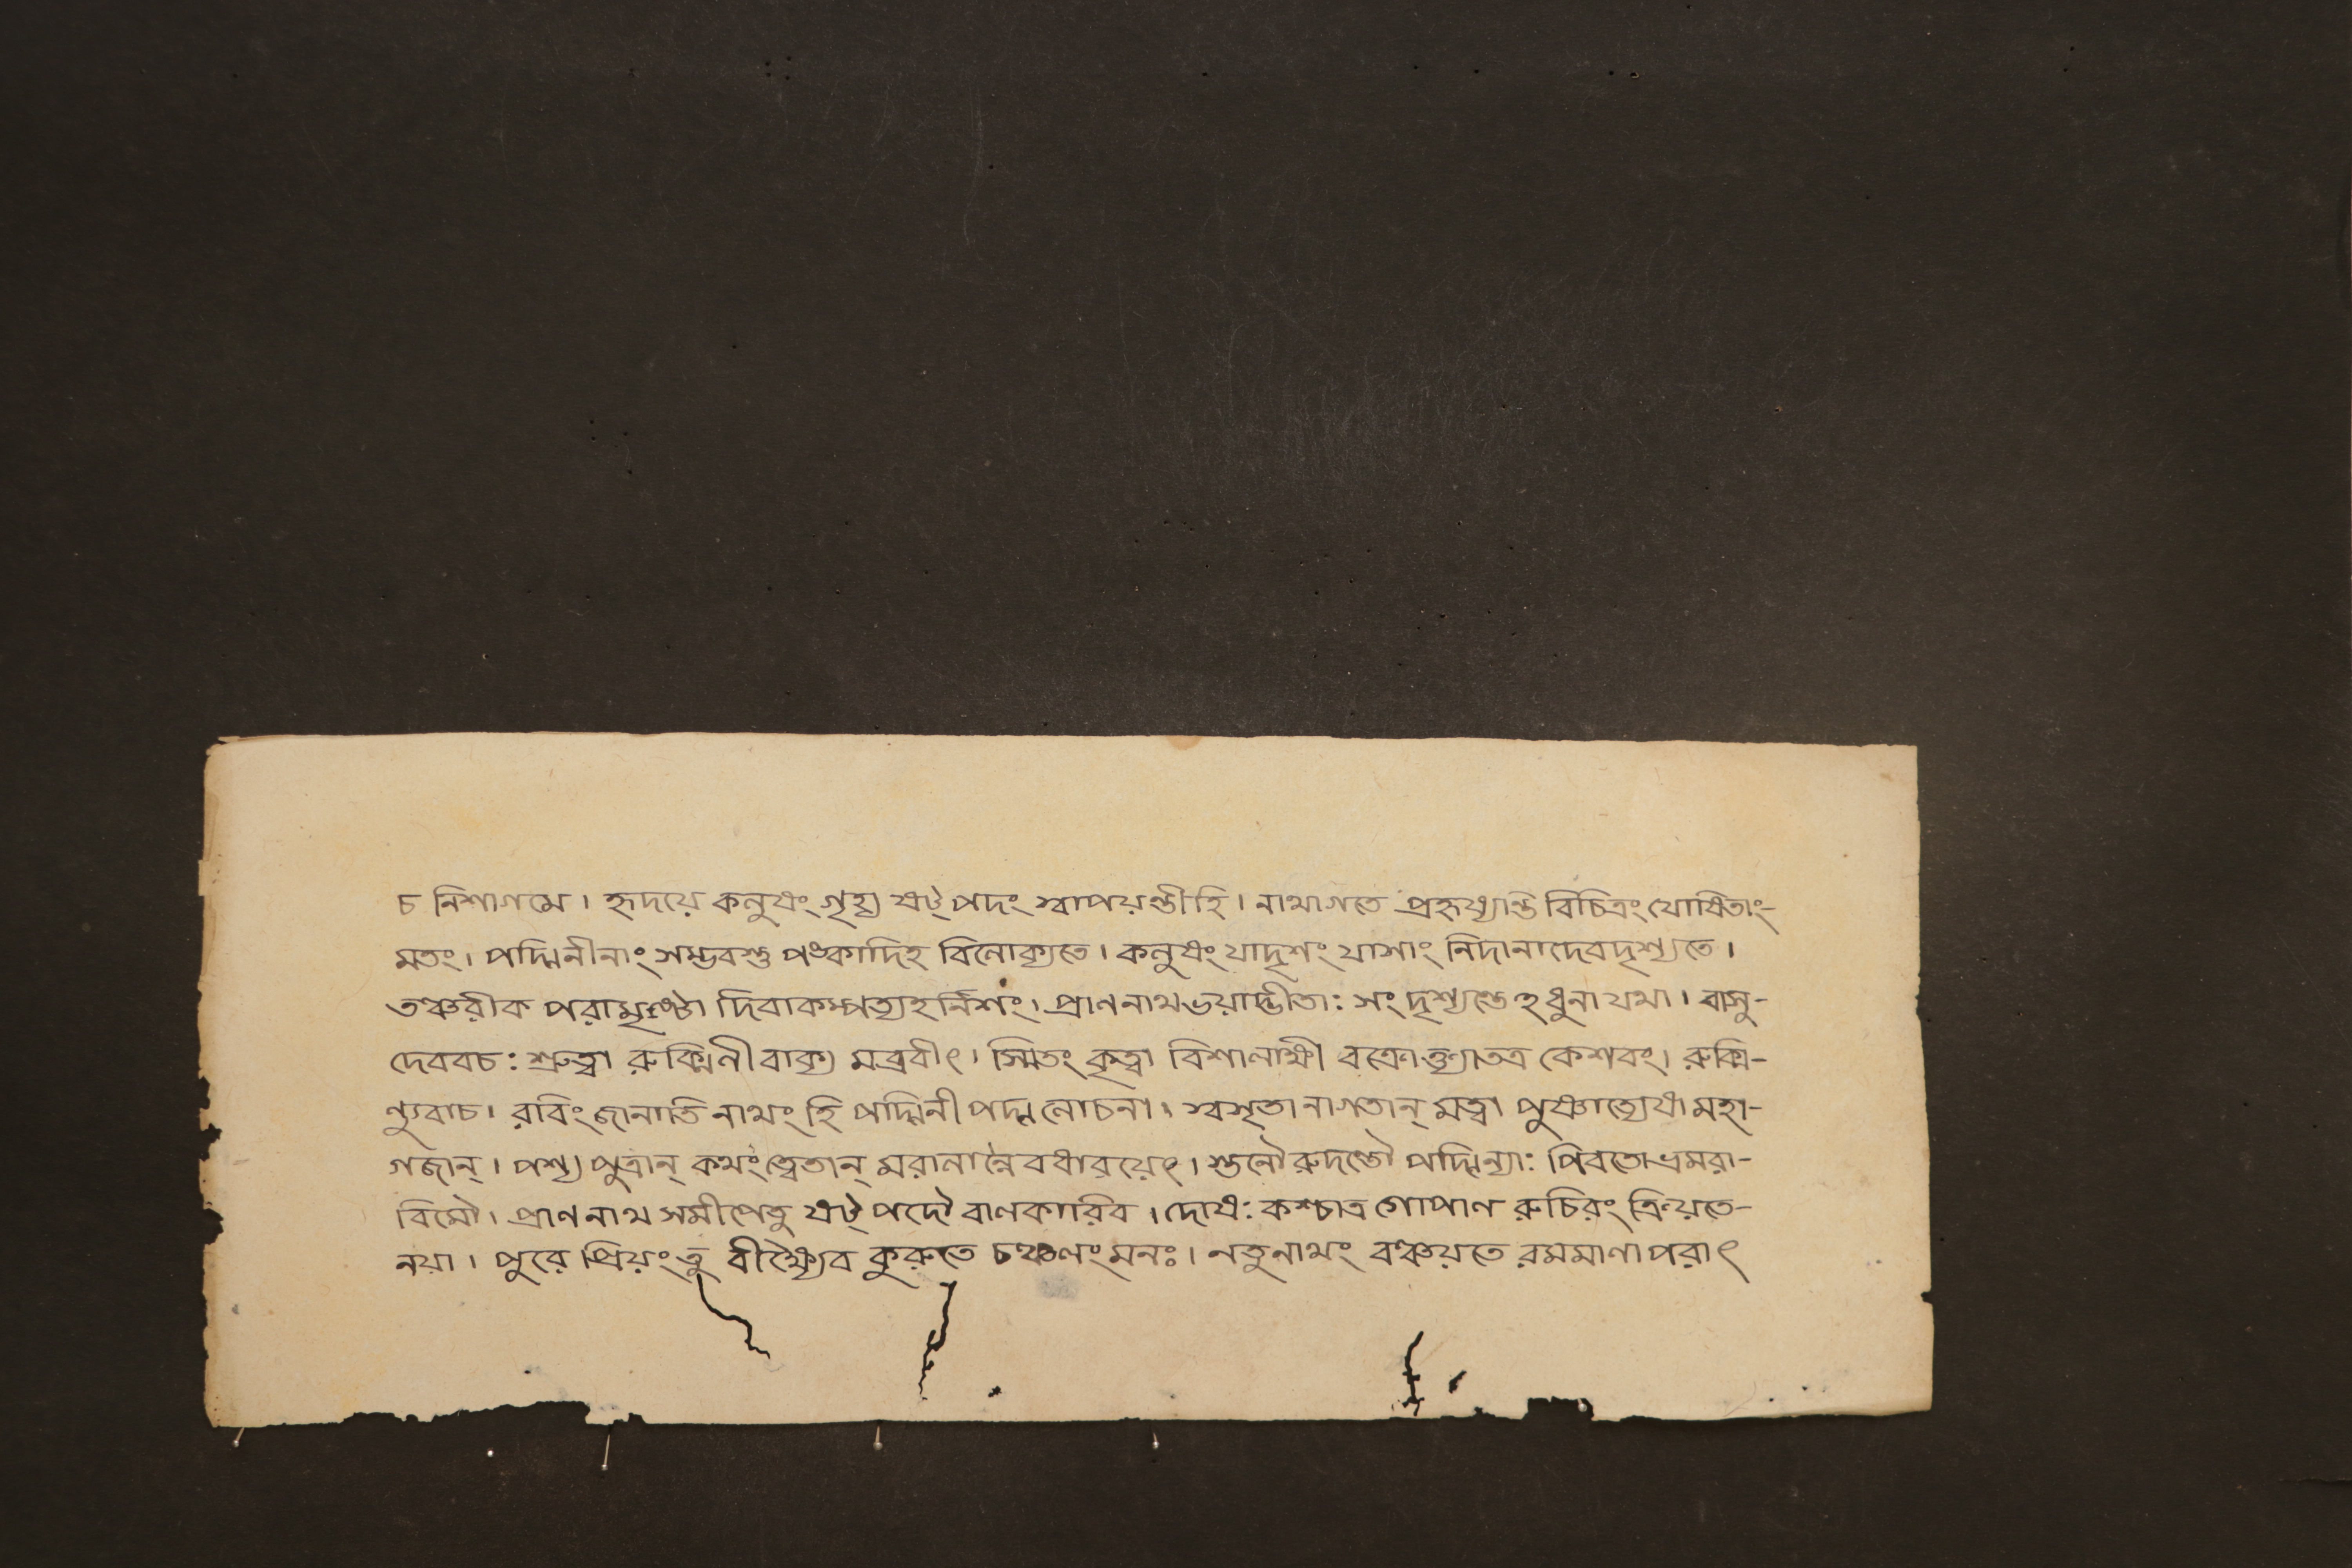 চ নিশাগমে। হৃদয়ে কলুষং গৃহ্য ষট্পদং স্বাপয়ন্তীহি। নাথাগতে প্রহৃষ্যান্তি বিচিত্রং যোষিতাং-
মতং। পদ্মিনীনাং সম্ভবস্তু পঙ্কাদিহ বিলোক্যতে। কলুষং যাদৃশং যাসাং নিদানাদেবদৃশ্যতে।
তঞ্চরীক পরামৃষ্টা দিবাকম্পত্যহর্নিশং। প্রাণনাথভয়াদ্ভীতা: সংদৃশ্যন্তেহধুনা যথা। বাসু-
দেববচ: শ্রুত্বা রুক্মিনী বাক্য মব্রবীৎ। স্মিতং কৃত্বা বিশালাক্ষী বক্রোক্ত্যাতত্র কেশবং। রুক্মি-
ণ্যুবাচ। রবিং জানাতি নাথং হি পদ্মিনী পদ্ম লোচনা। স্বসৃতা নাগতান্ মত্বা পুষ্ণাত্যেষা মহা-
গজান্। পশ্য পুত্রান্ কথং ত্বেতান্ মরালান্নৈবধারয়েৎ। স্তনৌ রুদন্তৌ পদ্মিন্যা: পিবতো ভ্রমরা-
বিমৌ। প্রাণ নাথ সমীপেতু ষট্ পদৌ বালকাবিব। দোষ: কশ্চাত্র গোপাল রুচিরং ক্রিয়তে-
নয়া। পুরে প্রিয়ং তু বীক্ষ্যৈব কুরুতে চঞ্চলং মনঃ। নতু নাথং বঞ্চয়তে রমমাণা পরাৎ